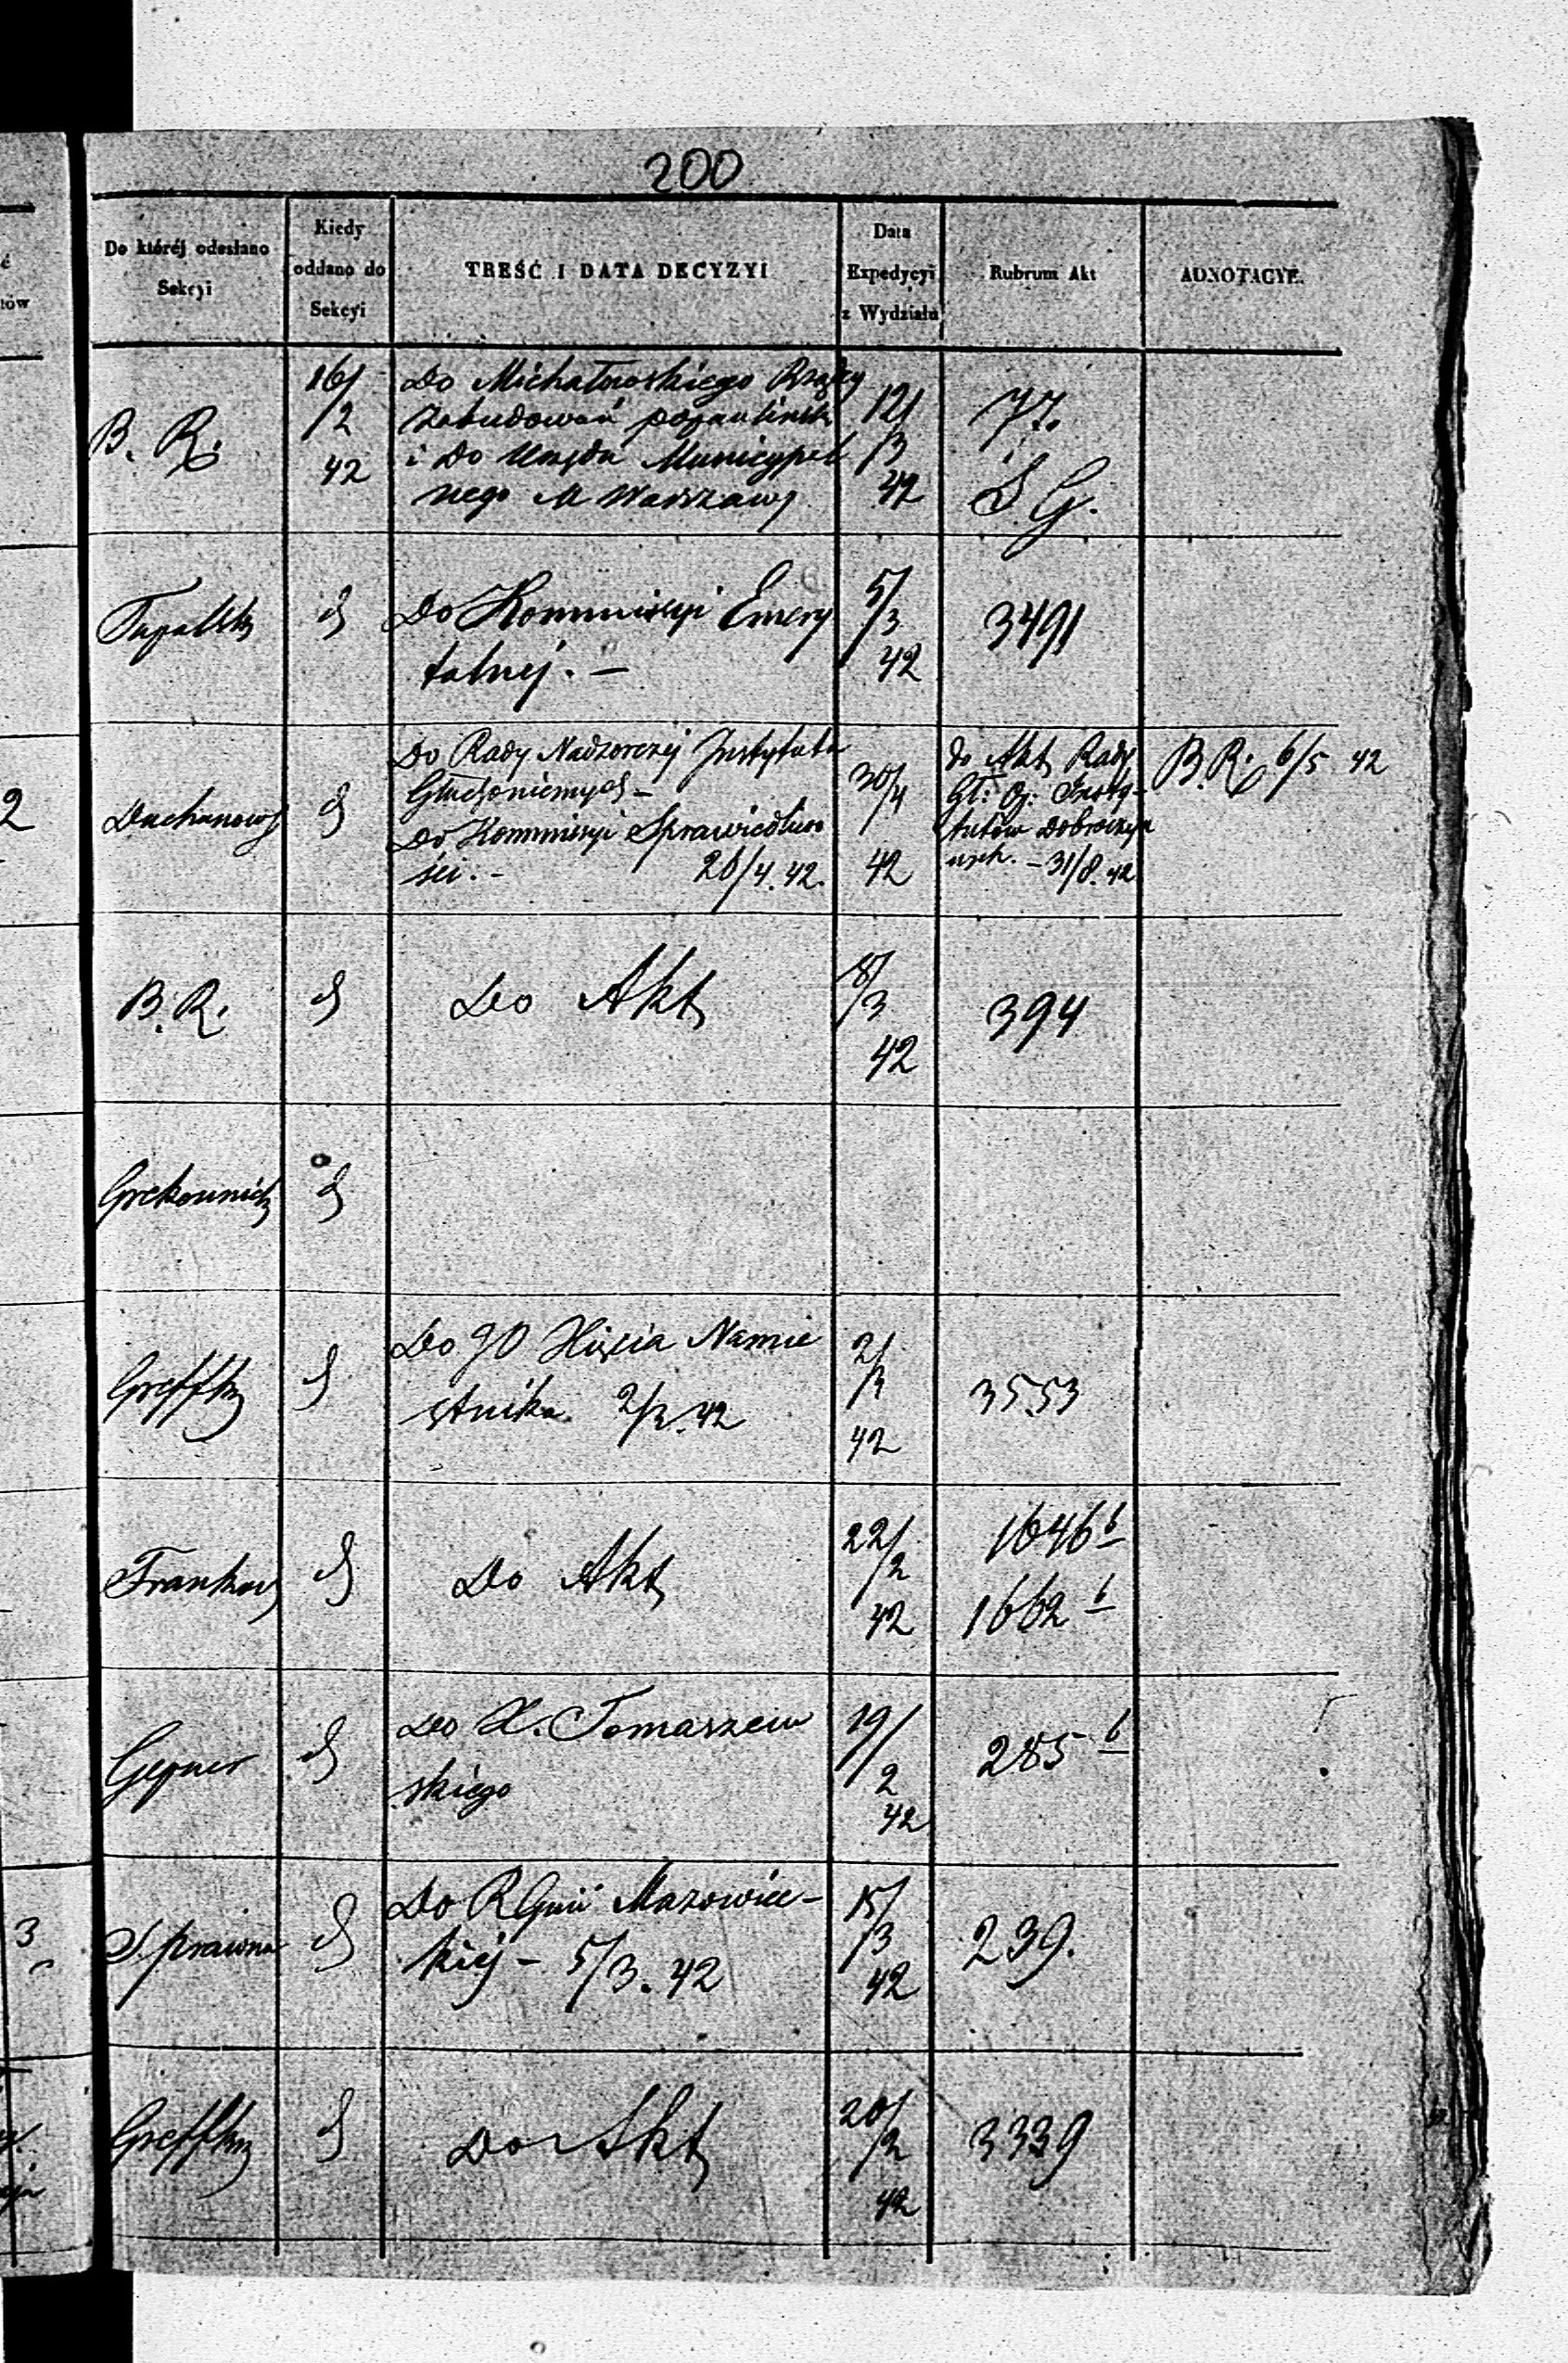 200
Do któréj odesłano
Sekcyi
Kiedy
oddano do
Sekcyi
TREŚĆ I DATA DECYZYI
Data
Expedycyi
z Wydziału
Rubrum Akt
ADNOTACYE.
B. R.
16/
/2
42
Do Michałowskiego Rządcy
Zabudowań popaulińsk
i Do Urzędu Municypal
nego M Warszawy
12/
/3
42
77.
S. G.
d
Do Kommissyi Emery
talnéj. –
5/
/3
42
3491
d
Do Rady Nadzorczéj Instytutu
Głuchoniemych –
Do Kommissyi Sprawiedliwo
ści. – 26/4. 42.
30/4
42
do Akt Rady
Gł: Op: Insty-
tutów Dobroczyn
31/8. 42
B. R. 6/5 42
B. R.
d
Do Akt
8/
/3
42
394
d
d
Do JO Xięcia Namie
stnika 2/3. 42
2/
/3
42
3553
d
Do Akt
22/
/2
42
1646 b
1662 b
Gepner
d
Do X. Tomaszew
skiego
19/
2
42
285 b
S. prawna
d
Do RGnii Mazowiec-
kiéj – 5/3. 42
15/
/3
42
239.
d
Do Akt
20/
/2
42
3339
2
3